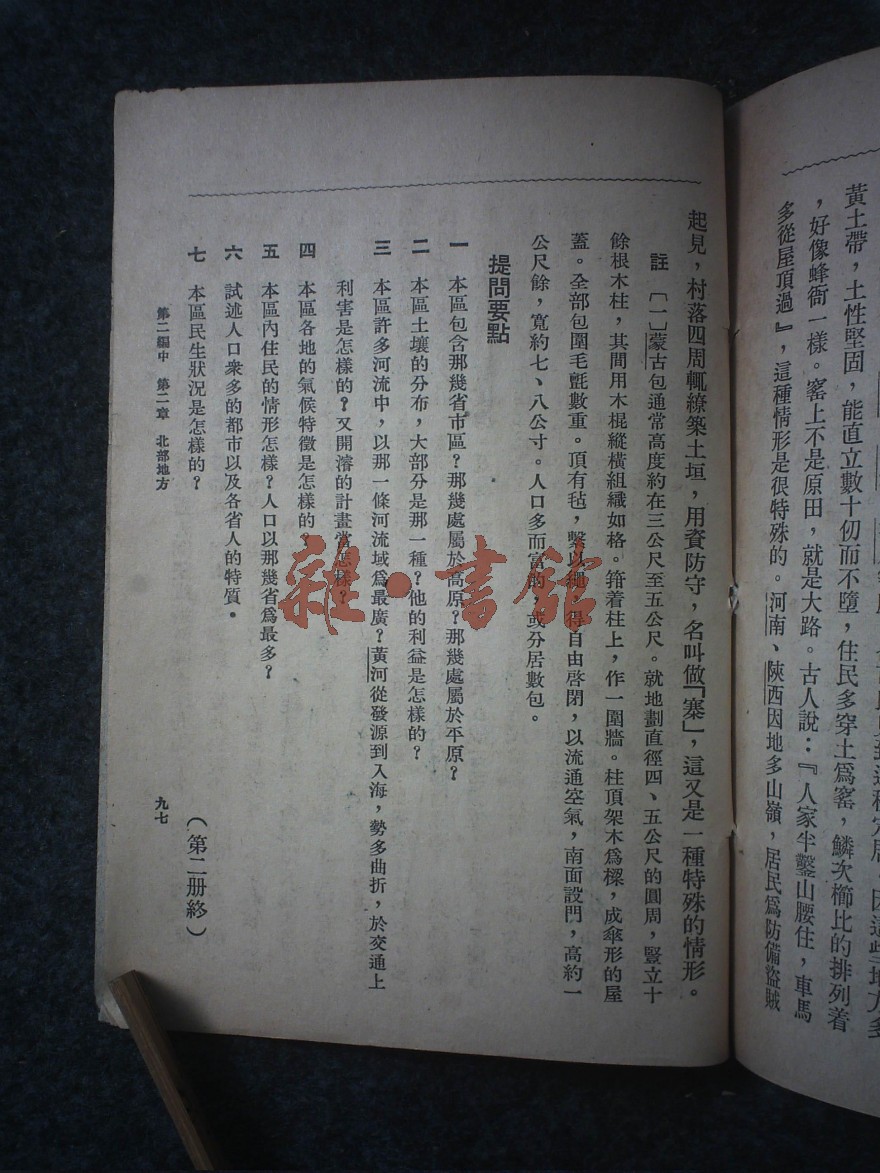 黃土帶，土性堅固，能直立數十仞而不墮，住民多穿土爲窰，鱗次櫛比的排列着
，好像蜂衙一樣。窰上不是原田，就是大路。古人說：『人家半鑿山腰住，車馬
多從屋頂過』，這種情形是很特殊的。河南、陝西因地多山嶺，居民爲防備盜賊
起見，村落四周輒繚築土垣，用資防守，名叫做「寨」，這又是一種特殊的情形。
註　〔一〕蒙古包通常高度約在三公尺至五公尺。就地劃直徑四、五公尺的圓周，豎立十
餘根木柱，其間用木棍縱橫組織如格。箝着柱上，作一圍牆。柱頂架木爲樑，成傘形的屋
蓋。全部包圍毛氈數重。頂有毡，繫以繩，得自由啓閉，以流通空氣，南面設門，高約一
公尺餘，寬約七、八公寸。人口多而富的，或分居數包。
提問要點
一　本區包含那幾省市區？那幾處屬於高原？那幾處屬於平原？
二　本區土壤的分布，大部分是那一種？他的利益是怎樣的？
三　本區許多河流中，以那一條河流域爲最廣？黃河從發源到入海，勢多曲折，於交通上
利害是怎樣的？又開濬的計畫當怎樣？
四　本區各地的氣候特徵是怎樣的？
五　本區內住民的情形怎樣？人口以那幾省爲最多？
六　試述人口衆多的都市以及各省人的特質。
七　本區民生狀況是怎樣的？
（第二册終）
第二編中　第二章　北部地方
九七
雜·書館